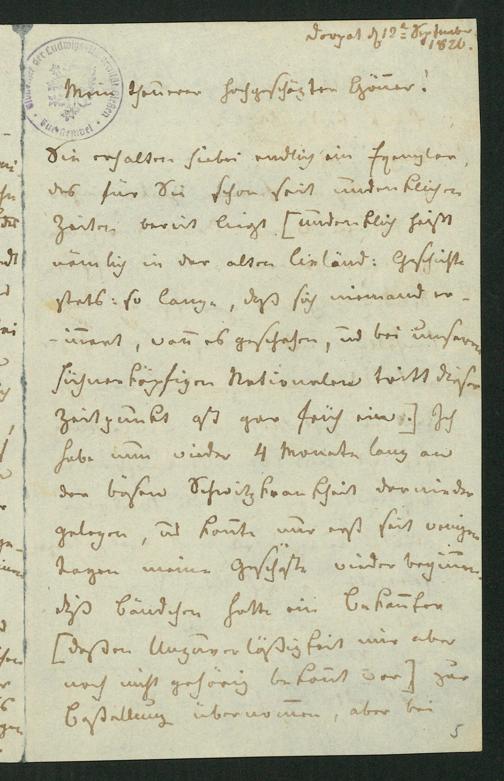 Dorpat d 12n September
1826.
Mein theurer hochgeschätzter Gönner!
Sie erhalten hiebei endlich ein Exemplar,
das für Sie schon seit undenklichen
Zeiten bereit liegt [undenklich heißt
nämlich in der alten Livländ: Geschichte
stets: so lange, daß sich niemand er-
-innert, wañ es geschehen, und bei unsern
hühnerköpfigen Nationalen tritt dieser
Zeitpunkt oft gar früh ein.] Ich
habe nun wieder 4 Monate lang an
der bösen Schwitzkrankheit darnieder
gelegen, und konte nur erst seit wenigen
Tagen meine Geschäfte wieder beginnen.
diß Bändchen hatte ein Bekañter
[deßen Unzuverläßigkeit mir aber
noch nicht gehörig bekañt war] zur
Bestellung übernom̄en, aber bei
5